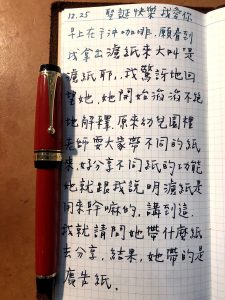 12.25 聖誕快樂 我愛你
早上在手沖咖啡,願看到
我拿出濾紙來大叫是
濾紙耶,我驚訝地回
望她,她開始滔滔不絕
地解釋,原來幼兒園裡
老師要大家帶不同的紙
來,好分享不同紙的功能
她就跟我說明濾紙是
用來幹嘛的,講到這.
我就請問她帶什麼紙
去分享,結果,她帶的是
廣告紙.